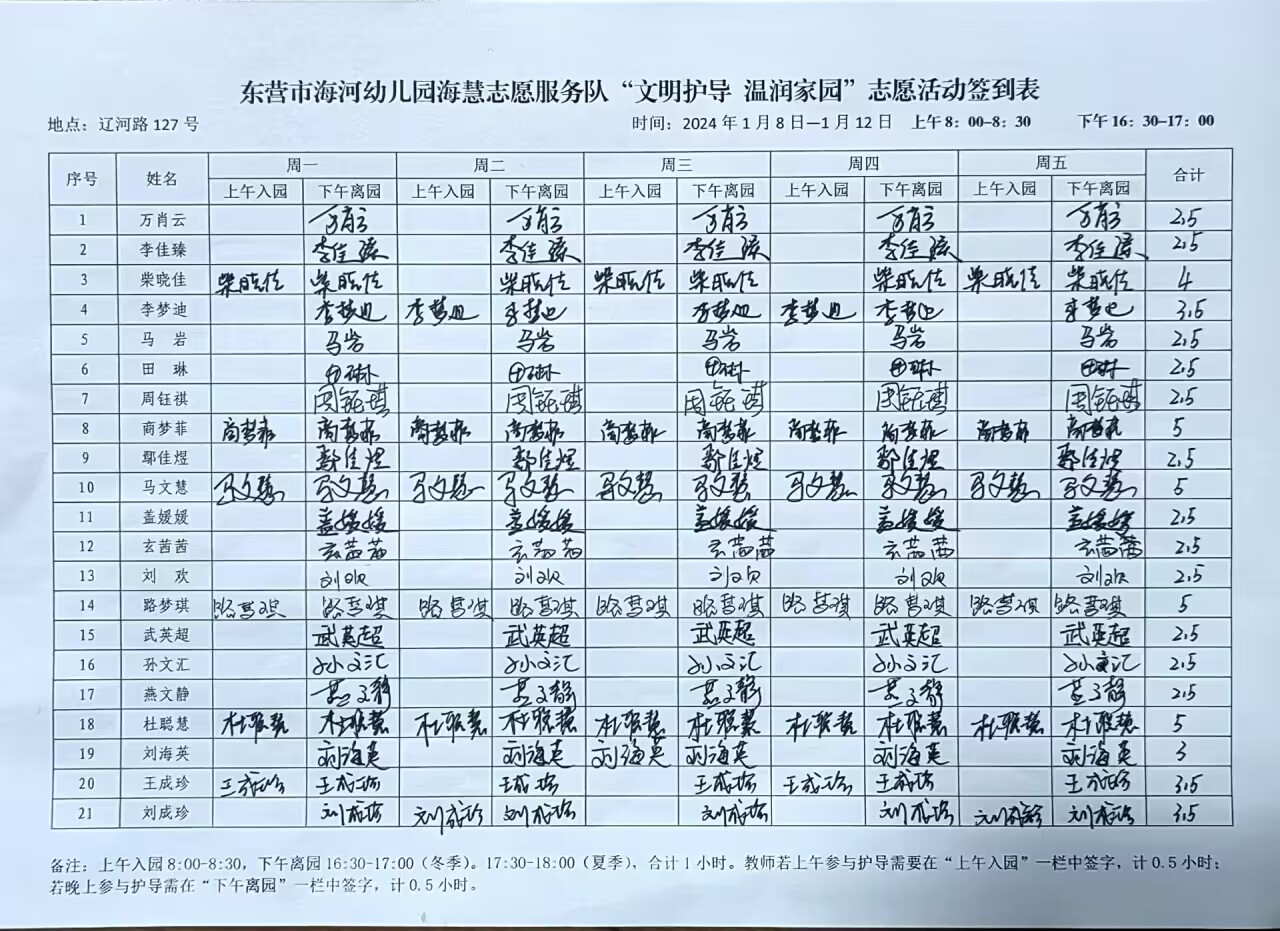 东营市海河幼儿园海慧志愿服务队“文明护导 温润家园”志愿活动签到表
地点：辽河路 127 号 时间：2024 年 1 月 8 日—1 月 12 日 上午 8：00-8：30 下午 16：30-17：00
序号 姓名 周一 周二 周三 周四 周五 合计
上午入园 下午离园 上午入园 下午离园 上午入园 下午离园 上午入园 下午离园 上午入园 下午离园
1 万肖云 万肖云 万肖云 万肖云 万肖云 万肖云 2.5
2 李佳臻 李佳臻 李佳臻 李佳臻 李佳臻 李佳臻 2.5
3 柴晓佳 柴晓佳 柴晓佳 柴晓佳 柴晓佳 柴晓佳 柴晓佳 柴晓佳 柴晓佳 4
4 李梦迪 李梦迪 李梦迪 李梦迪 李梦迪 李梦迪 李梦迪 李梦迪 3.5
5 马 岩 马岩 马岩 马岩 马岩 马岩 2.5
6 田 琳 田琳 田琳 田琳 田琳 田琳 2.5
7 周钰祺 周钰祺 周钰祺 周钰祺 周钰祺 周钰祺 2.5
8 商梦菲 商梦菲 商梦菲 商梦菲 商梦菲 商梦菲 商梦菲 商梦菲 商梦菲 商梦菲 商梦菲 5
9 鄢佳煜 鄢佳煜 鄢佳煜 鄢佳煜 鄢佳煜 鄢佳煜 2.5
10 马文慧 马文慧 马文慧 马文慧 马文慧 马文慧 马文慧 马文慧 马文慧 马文慧 马文慧 5
11 盖媛媛 盖媛媛 盖媛媛 盖媛媛 盖媛媛 盖媛媛 2.5
12 玄茜茜 玄茜茜 玄茜茜 玄茜茜 玄茜茜 玄茜茜 2.5
13 刘 欢 刘欢 刘欢 刘欢 刘欢 刘欢 2.5
14 路梦琪 路梦琪 路梦琪 路梦琪 路梦琪 路梦琪 路梦琪 路梦琪 路梦琪 路梦琪 路梦琪 5
15 武英超 武英超 武英超 武英超 武英超 武英超 2.5
16 孙文汇 孙文汇 孙文汇 孙文汇 孙文汇 孙文汇 2.5
17 燕文静 燕文静 燕文静 燕文静 燕文静 燕文静 2.5
18 杜聪慧 杜聪慧 杜聪慧 杜聪慧 杜聪慧 杜聪慧 杜聪慧 杜聪慧 杜聪慧 杜聪慧 杜聪慧 5
19 刘海英 刘海英 刘海英 刘海英 刘海英 刘海英 刘海英 3
20 王成珍 王成珍 王成珍 王成珍 王成珍 王成珍 王成珍 王成珍 3.5
21 刘成珍 刘成珍 刘成珍 刘成珍 刘成珍 刘成珍 刘成珍 刘成珍 3.5
备注：上午入园 8:00-8:30，下午离园 16:30-17:00（冬季）。17:30-18:00（夏季），合计 1 小时。教师若上午参与护导需要在“上午入园”一栏中签字，计 0.5 小时；
若晚上参与护导需在“下午离园”一栏中签字，计 0.5 小时。